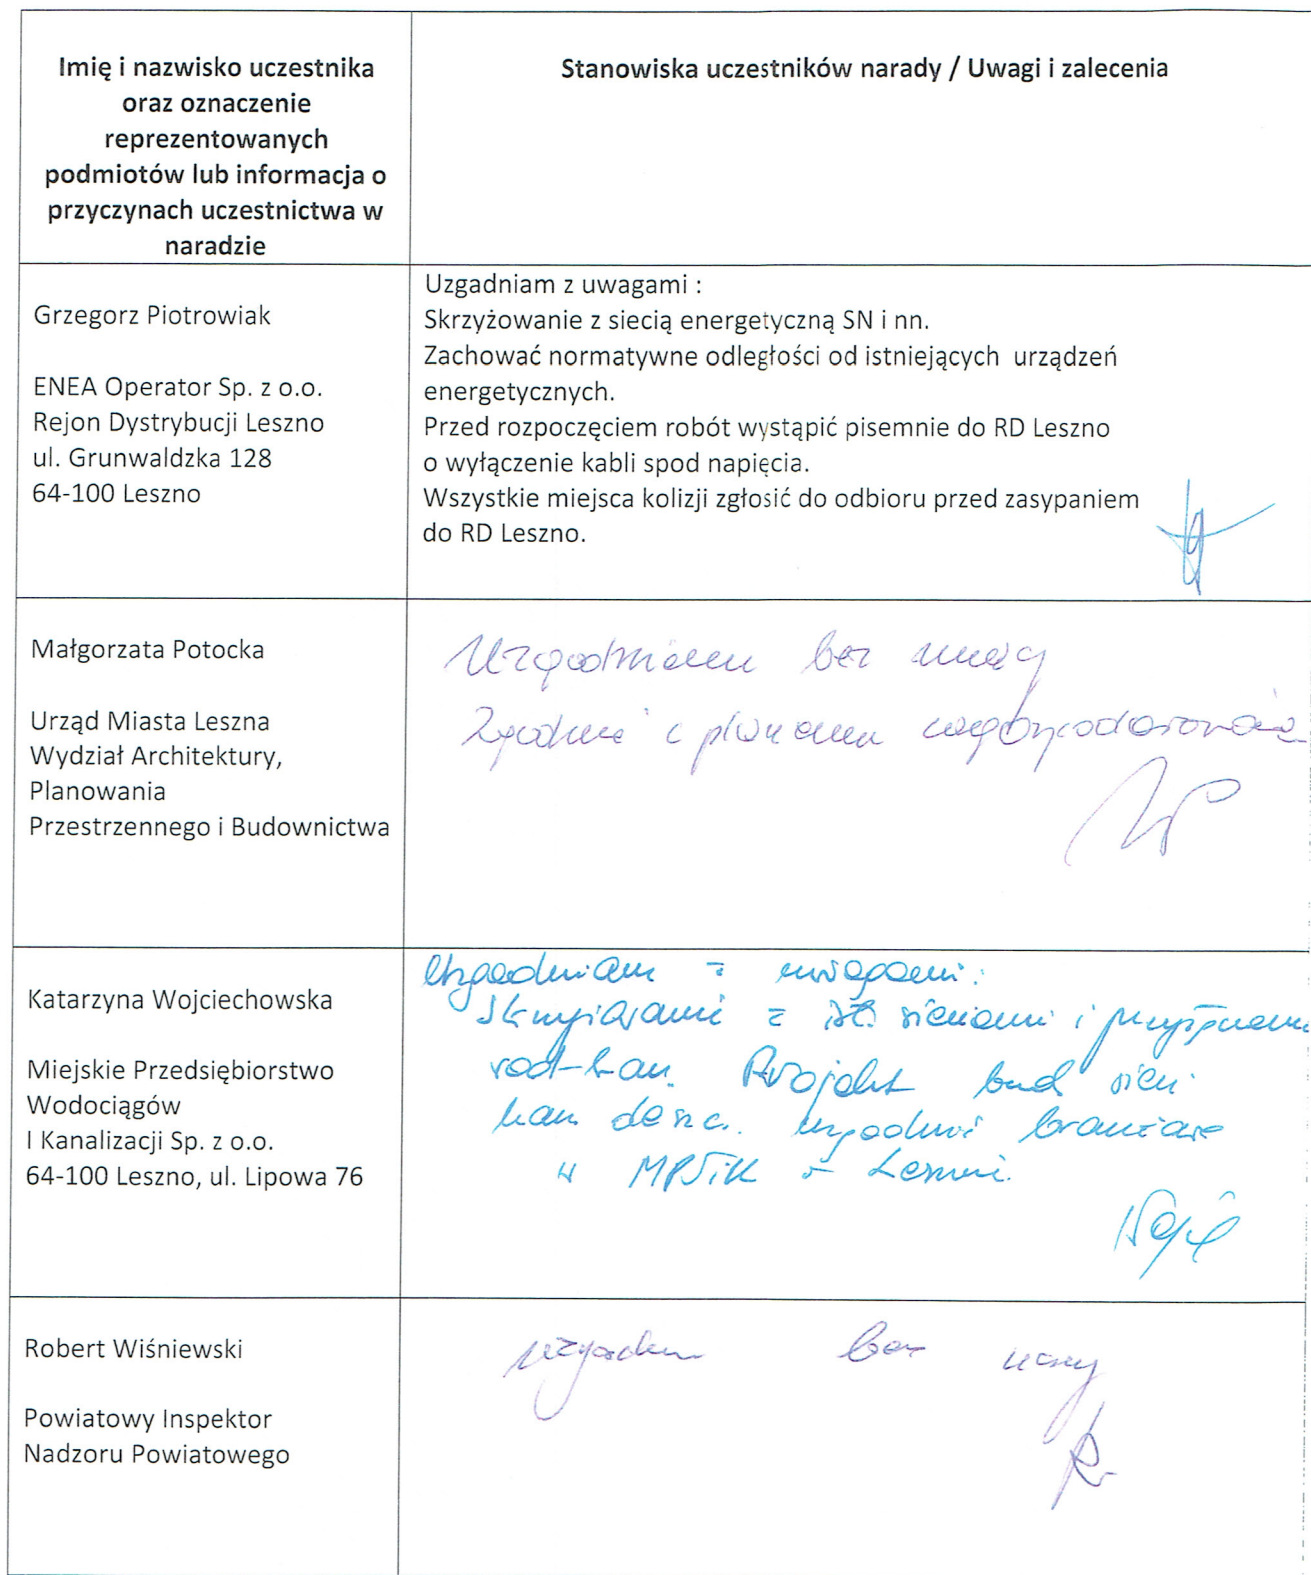 Imię i nazwisko uczestnika
oraz oznaczenie
reprezentowanych
podmiotów lub informacja o
przyczynach uczestnictwa w
naradzie
Stanowiska uczestników narady / Uwagi i zalecenia
Grzegorz Piotrowiak
ENEA Operator Sp. z o.o.
Rejon Dystrybucji Leszno
ul. Grunwaldzka 128
64-100 Leszno
Uzgadniam z uwagami :
Skrzyżowanie z siecią energetyczną SN i nn.
Zachować normatywne odległości od istniejących urządzeń
energetycznych.
Przed rozpoczęciem robót wystąpić pisemnie do RD Leszno
o wyłączenie kabli spod napięcia.
Wszystkie miejsca kolizji zgłosić do odbioru przed zasypaniem
do RD Leszno.
Małgorzata Potocka
Urząd Miasta Leszna
Wydział Architektury,
Planowania
Przestrzennego i Budownictwa
Uzgadniam bez uwag
Zgodnie z planem
Katarzyna Wojciechowska
Miejskie Przedsiębiorstwo
Wodociągów
I Kanalizacji Sp. z o.o.
64-100 Leszno, ul. Lipowa 76
Uzgadniam z uwagami:
Skrzyżowanie z ist. sieciami i
wod-kan. Projekt bud sieci
kan deszcz. uzgodnić branżowo
w MPWiK w Lesznie.
Robert Wiśniewski
Powiatowy Inspektor
Nadzoru Powiatowego
uzgadniam bez uwag